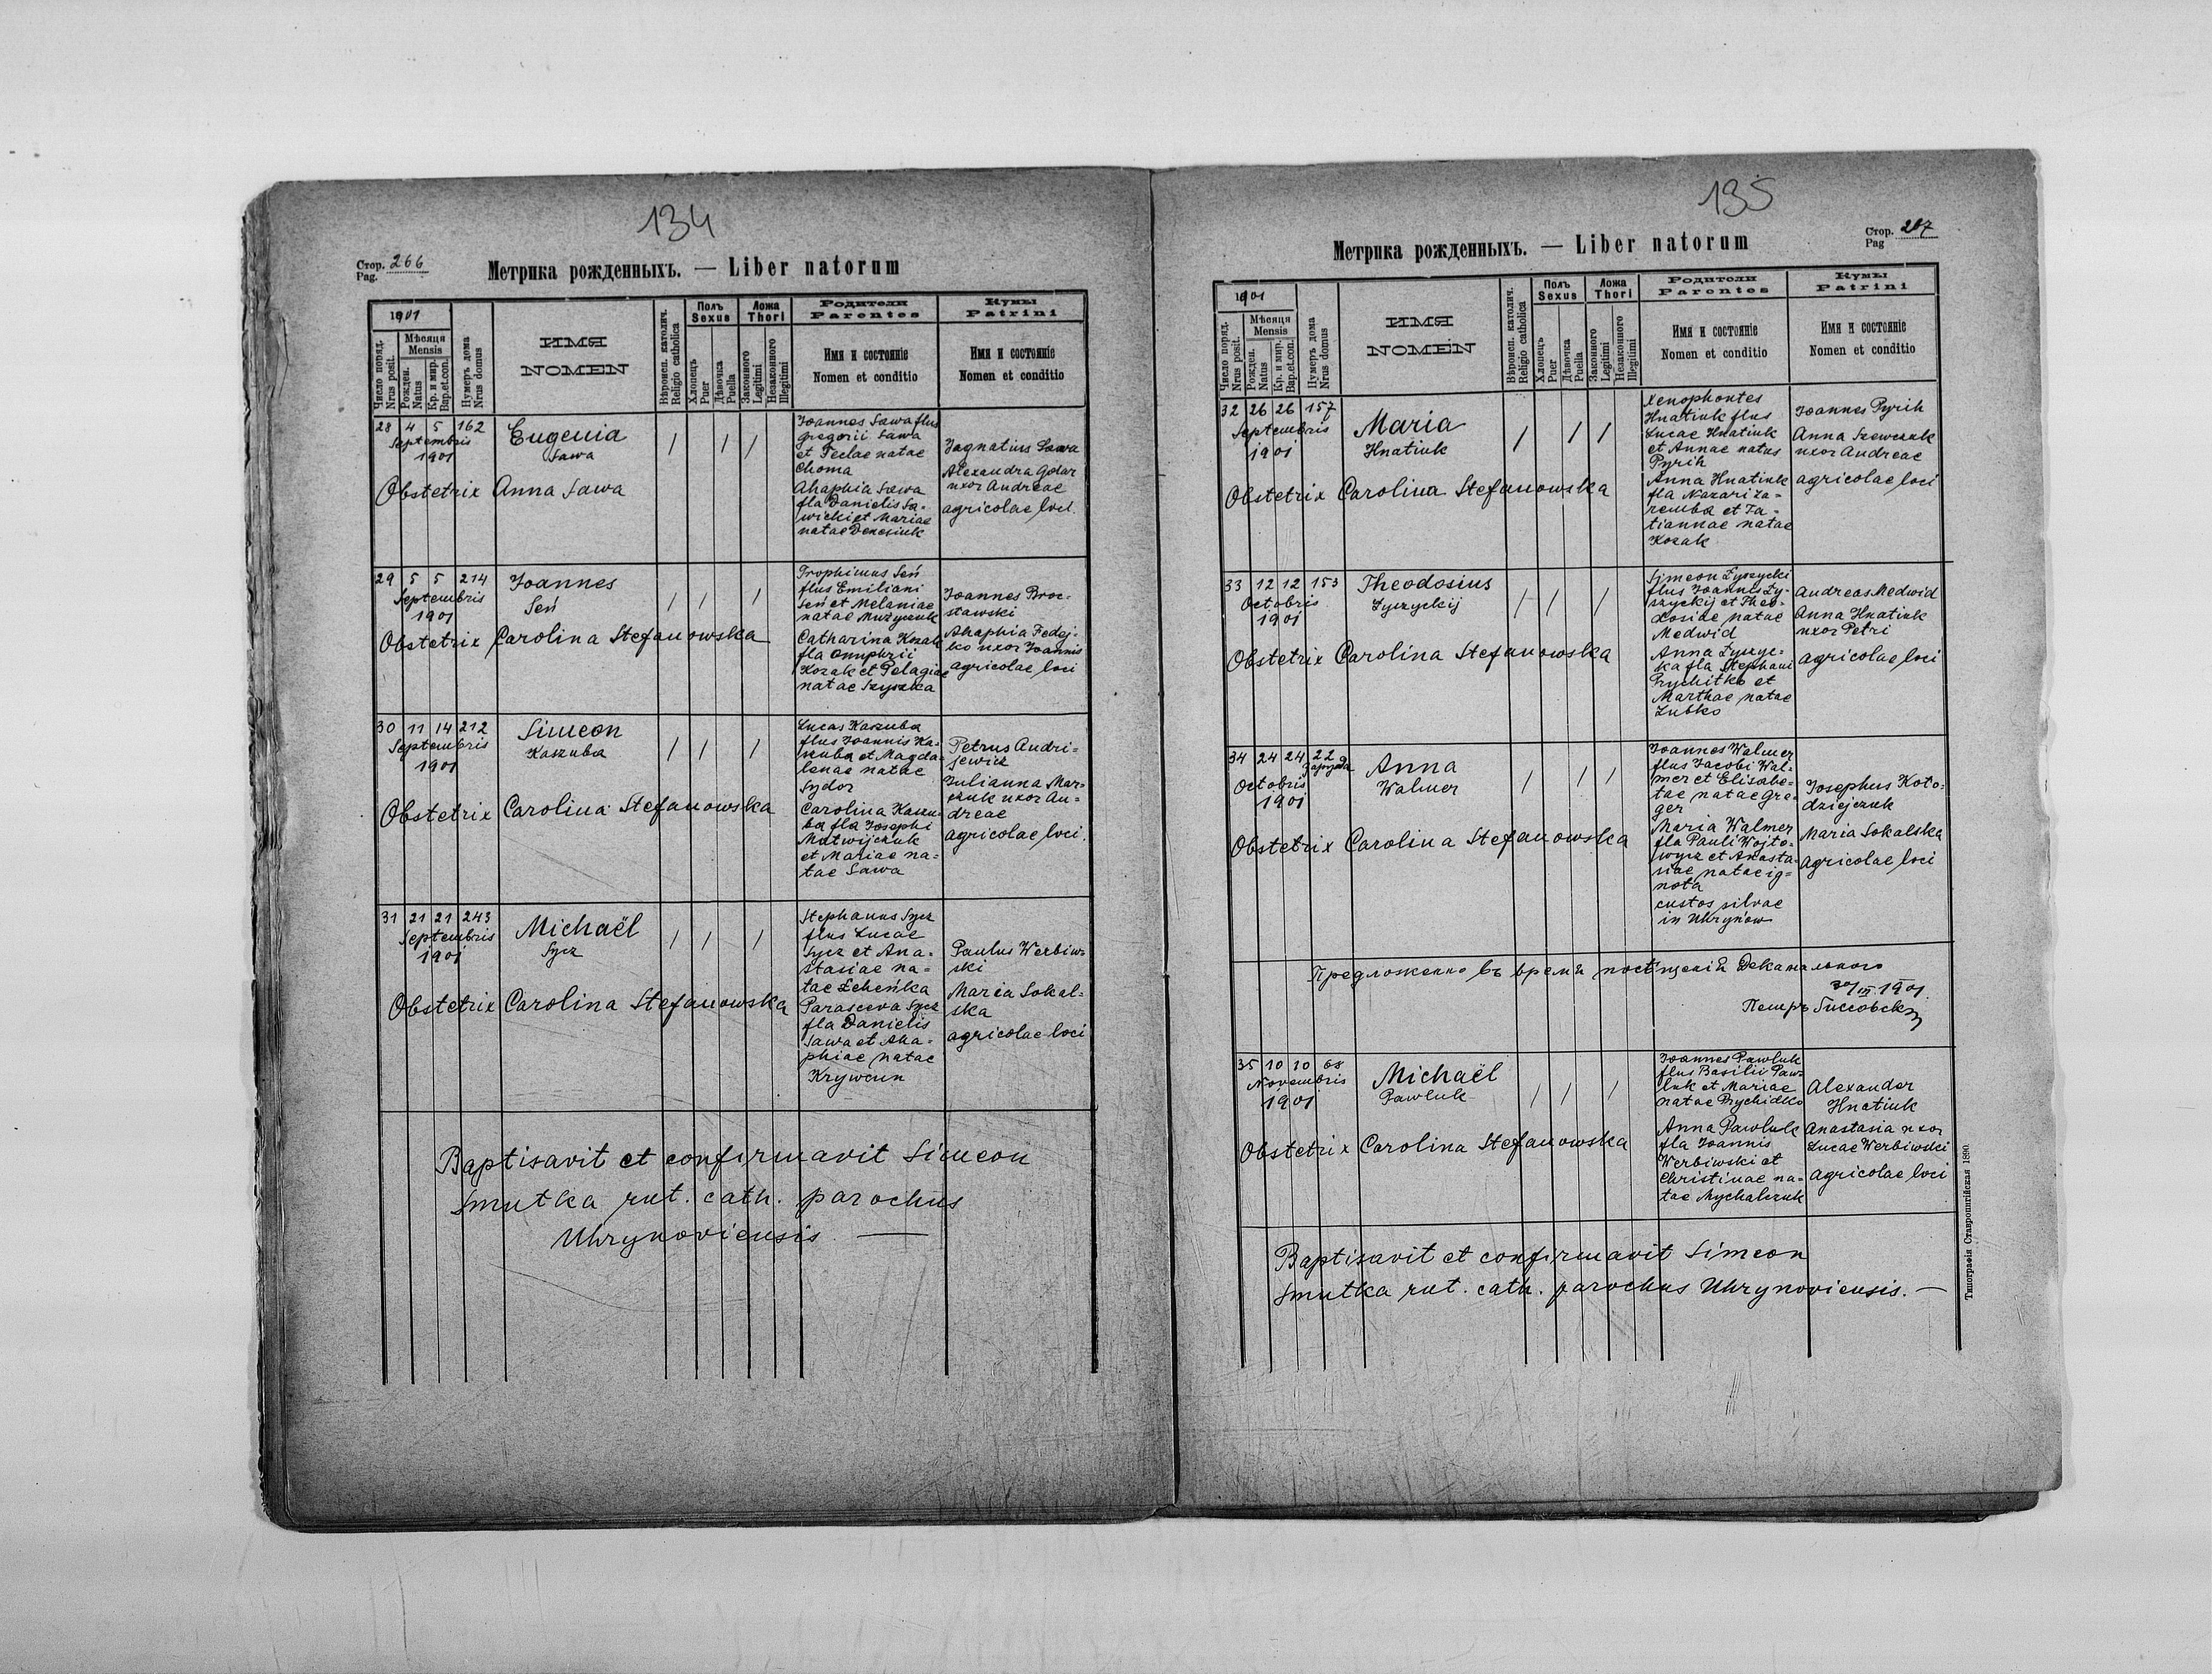 134
Стор. 266
Pag.
Метрика рожденныхъ. — Liber natorum
1901
Число поряд.
Nrus posit.
Мѣсяця
Mensis
Рожден.
Natus
Кр. и мир.
Bap. et con.
Нумеръ дома
Nrus domus
ИМЯ
NOMEN
Вѣроисп. католич.
Religio catholica
Полъ
Sexus
Хлопецъ
Puer
Дѣвочка
Puella
Ложа
Thori
Законного
Legitimi
Незаконного
Illegitimi
Родители
Parentes
Имя и состояніе
Nomen et conditio
Кумы
Patrini
Имя и состояніе
Nomen et conditio
28 4 5 162
Septembris
1901
Eugenia
Sawa
Obstetrix Anna Sawa
Joannes Sawa flus
Gregorii Sawa
et Teclae natae
Choma
Ahaphia Sawa
fla Danielis Sa-
wicki et Mariae
natae Denesiuk
Jagnatius Sawa
Alexandra Golar
uxor Andreae
agricolae loci.
29 5 5 214
Septembris
1901
Joannes
Seń
Obstetrix Carolina Stefanowska
Trophimus Seń
flus Emiliani
Seń et Melaniae
natae Muzyczuk
Catharina Kozak
fla Onuphrii
Kozak et Pelagiae
natae Szyszka
Joannes Broc-
stawski
Ahaphia Fedej-
ko uxor Joannis
agricolae loci
30 11 14 212
Septembris
1901
Simeon
Kaszuba
Obstetrix Carolina Stefanowska
Lucas Kaszuba
flus Joannis Ka-
szuba et Magda-
lenae natae
Sydor
Carolina Kaszu-
ba fla Josephi
Matwijczuk
et Mariae na-
tae Sawa
Petrus Andri-
jewicz
Julianna Mar-
czuk uxor An-
dreae
agricolae loci.
31 21 21 243
Septembris
1901
Michaël
Sycz
Obstetrix Carolina Stefanowska
Stephanus Sycz
flus Lucae
Sycz et Ana-
stasiae na-
tae Łeheńka
Parasceva Sycz
fla Danielis
Sawa et Aha-
phiae natae
Krywcun
Paulus Werbiw-
ski
Maria Sokal-
ska
agricolae loci
Baptisavit et confirmavit Simeon
Smutka rut. cath. parochus
Uhrynoviensis. —
135
Стор. 267
Pag
Метрика рожденныхъ. — Liber natorum
1901
Число поряд.
Nrus posit.
Мѣсяця
Mensis
Рожден.
Natus
Кр. и мир.
Bap. et con.
Нумеръ дома
Nrus domus
ИМЯ
NOMEN
Вѣроисп. католич.
Religio catholica
Полъ
Sexus
Хлопецъ
Puer
Дѣвочка
Puella
Ложа
Thori
Законного
Legitimi
Незаконного
Illegitimi
Родители
Parentes
Имя и состояніе
Nomen et conditio
Кумы
Patrini
Имя и состояніе
Nomen et conditio
32 26 26 157
Septembris
1901
Maria
Hnatiuk
Obstetrix Carolina Stefanowska
Xenophontes
Hnatiuk flus
Lucae Hnatiuk
et Annae natus
Pyrih
Anna Hnatiuk
fla Nazari Za-
remba et Ta-
tiannae natae
Kozak
Joannes Pyrih
Anna Szewczuk
uxor Andreae
agricolae loci
33 12 12 153
Octobris
1901
Theodosius
Łyszyckij
Obstetrix Carolina Stefanowska
Simeon Łyszycki
flus Joannis Ły-
szyckij et Theo-
dosidae natae
Medwid
Anna Łyszyc-
ka fla Stephani
Prychitko et
Marthae natae
Zubko
Andreas Medwid
Anna Hnatiuk
uxor Petri
agricolae loci
34 24 24 22
Octobris
1901
Anna
Walmer
Obstetrix Carolina Stefanowska
Joannes Walmer
flus Jacobi Wal-
mer et Elisabe-
tae natae Gre-
ger
Maria Walmer
fla Pauli Wojto-
wycz et Anasta-
siae natae ig-
nota
custos silvae
in Uhrynów
Josephus Koło-
dziejczuk
Maria Sokalska
agricolae loci
Предложенно въ время посѣщенія Деканального
30/XI 1901.
Петръ
35 10 10 68
Novembris
1901
Michaël
Pawluk
Obstetrix Carolina Stefanowska
Joannes Pawluk
flus Basilii Paw-
luk et Mariae
natae Prychidko
Anna Pawluk
fla Joannis
Werbiwski et
Christinae na-
tae Mychalczuk
Alexander
Hnatiuk
Anastasia uxor
Lucae Werbiwski
agricolae loci
Baptisavit et confirmavit Simeon
Smutka rut. cath. parochus Uhrynoviensis. —
Типографія Ставропигійская 1890